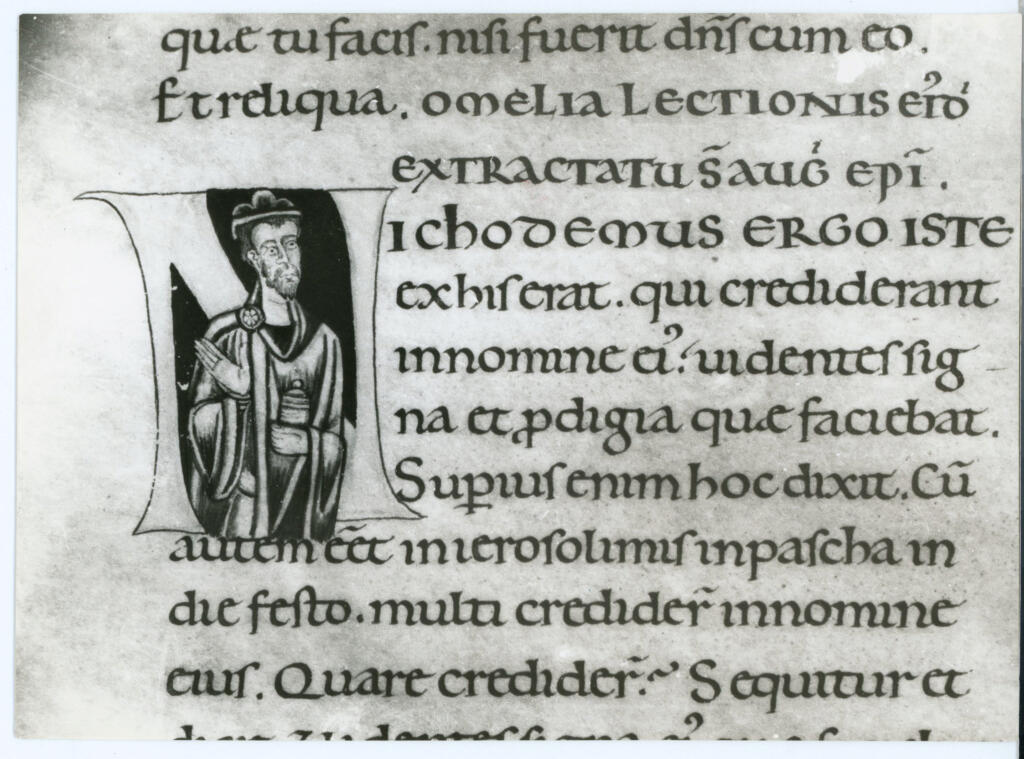 quæ tu facis. nisi fuerit dn̄s cum eo.
Et reliqua. OMELIA LECTIONIS EIꝰD̄
EXTRACTATU S̄ AUḠ EPĪ.
NICHODEMUS ERGO ISTE
ex his erat. qui crediderant
in nomine eiꝰ. uidentes sig
na et ꝓdigia quæ faciebat.
Superius enim hoc dixit. Cū
autem eēt in ierosolimis in pascha in
die festo. multi credider̄ in nomine
eius. Quare credider̄? Sequitur et